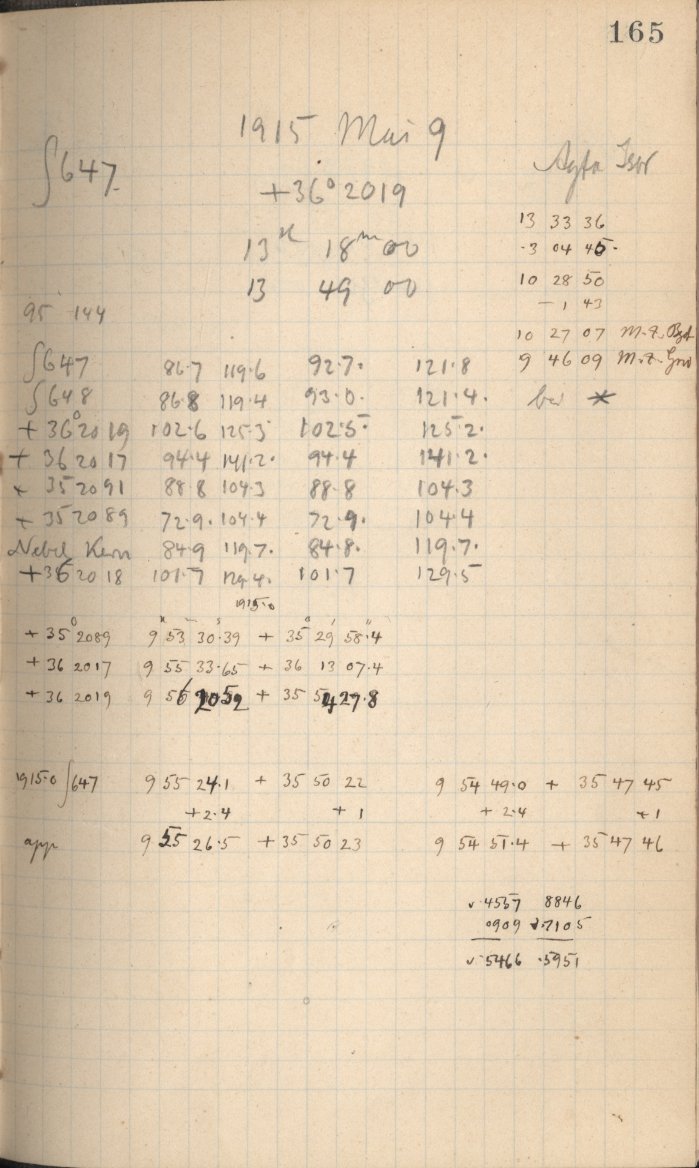 165
1915 Mai 9
∫647
+36° 2019
13ʰ 18ᵐ 00
13 49 00
13 33 36
-3 04 45.
10 28 50
-1 43
10 27 07 M.Z. Bgd
9 46 09 M.Z. Grw
95 144
∫647 86.7 119.6 92.7. 121.8
∫648 86.8 119.4 93.0. 121.4.
+36° 2019 102.6 125.3 102.5. 125.2.
+ 36 2017 94.4 141.2. 94.4 141.2.
+ 35 2091 88.8 104.3 88.8 104.3
+ 35 2089 72.9. 104.4 72.9. 104.4
Nebel Kern 84.9 119.7. 84.8. 119.7.
+36 2018 101.7 129.4. 101.7 129.5
bei *
1915.0
+ 35° 2089 9ʰ 53ᵐ 30ˢ.39 + 35° 29′ 58″.4
+ 36 2017 9 55 33.65 + 36 13 07.4
+ 36 2019 9 56 + 35
1915.0 ∫647 9 55 24.1 + 35 50 22 9 54 49.0 + 35 47 45
+2.4 + 1 + 2.4 +1
app 9 55 26.5 + 35 50 23 9 54 51.4 + 35 47 46
4557 8846
0909 7105
5466 .5951